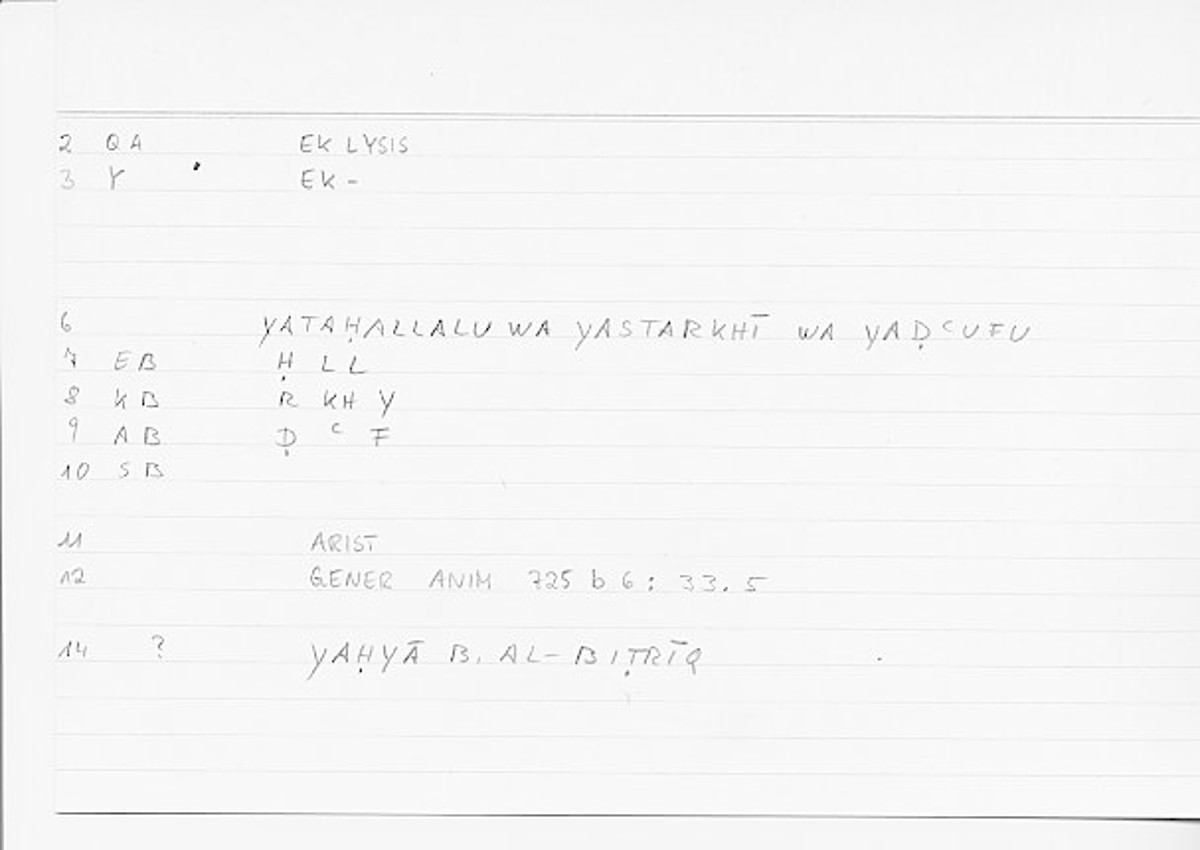 2 QA EKLYSIS
3 Y EK-
6 YATAḤALLALU WA YASTARKHĪ WA YAḌ ᶜUFU
7 EB Ḥ L L
8 KB R KH Y
9 AB Ḍ ᶜ F
10 SB
11 ARIST
12 GENER ANIM 725 b 6 : 33.5
14 ? YAḤYĀ B. AL-BIṬRĪQ